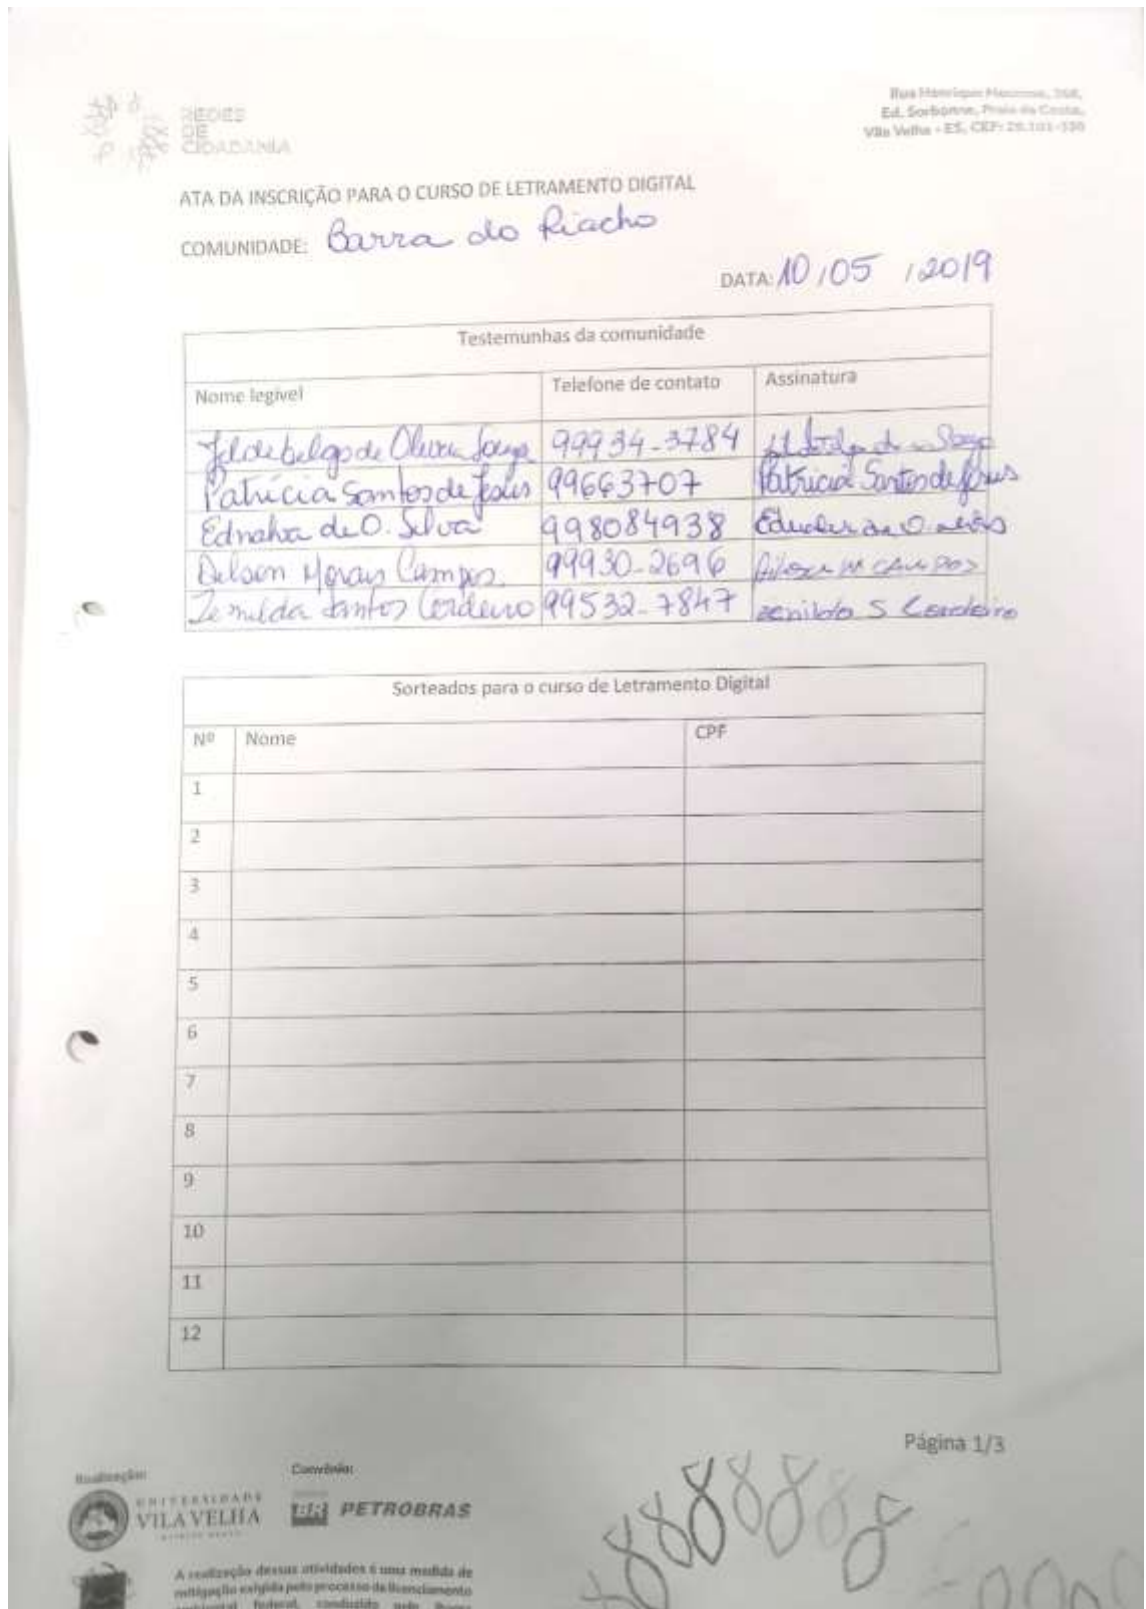 REDES
DE
CIDADANIA
Rua Henrique
Ed. Sorbonne, Praia da Costa,
Vila Velha - ES, CEP:
ATA DA INSCRIÇÃO PARA O CURSO DE LETRAMENTO DIGITAL
COMUNIDADE: Barra do Riacho
DATA: 10/05/2019
Testemunhas da comunidade
Nome legível Telefone de contato Assinatura
de Oliveira Souza 99934-3784
Patrícia Santos de Jesus 99663707 Patricia Santos de Jesus
Ednalva de O. Silva 998084938
Morais Campos 99930-2696 M CAMPOS
Zenilda Santos Cordeiro 99532-7847 S Cordeiro
Sorteados para o curso de Letramento Digital
Nº Nome CPF
1
2
3
4
5
6
7
8
9
10
11
12
Página 1/3
Realização:
Convênio:
UNIVERSIDADE
VILA VELHA
BR PETROBRAS
A realização dessas atividades é uma medida de
mitigação exigida pelo processo de licenciamento
ambiental federal, conduzido pelo Ibama